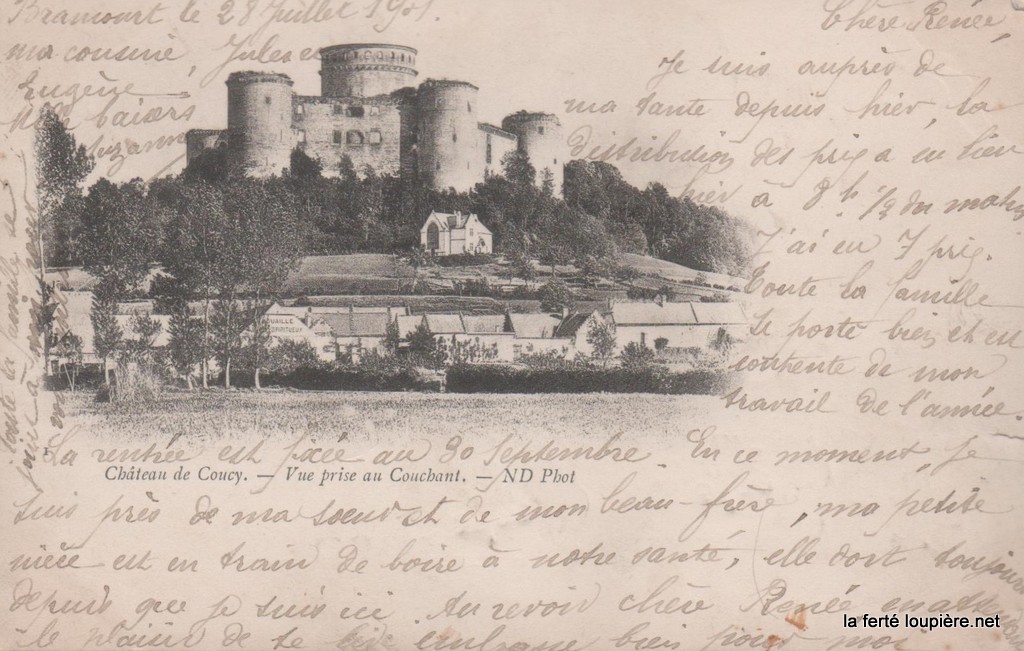 Brancourt le 28 Juillet 1901.
Chère Renée,
Je suis auprès de
ma tante depuis hier, la
Distribution des prix a eu lieu
hier à 8h 1/2 du matin
J'ai eu 7 prix.
Toute la famille
se porte bien et est
contente de mon
travail de l'année.
La rentrée est fixée au 30 Septembre. En ce moment, je
Château de Coucy. — Vue prise au Couchant. — ND Phot
suis près de ma soeur et de mon beau-frère, ma petite
nièce est en train de boire à notre santé, elle dort toujours
depuis que je suis ici. Au revoir chère Renée en
le plaisir de te embrasse bien pour moi
ma cousine, Jules et
Eugène.
baisers
Suzanne
Toute la famille se
joint à moi
la ferté loupière.net